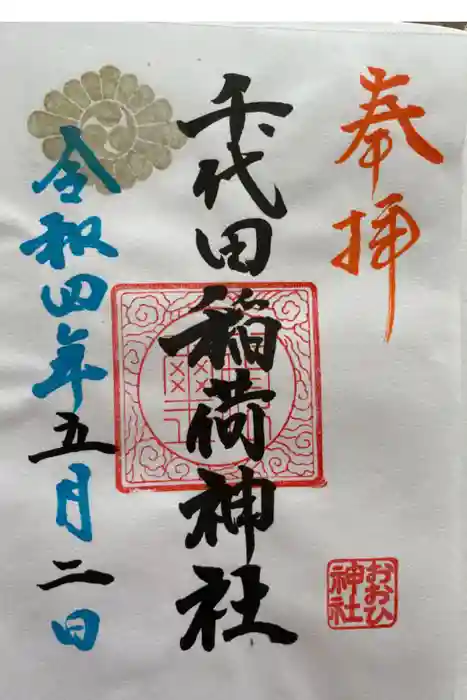 奉拝
千代田稲荷神社
令和四年五月二日
おおひ
神社